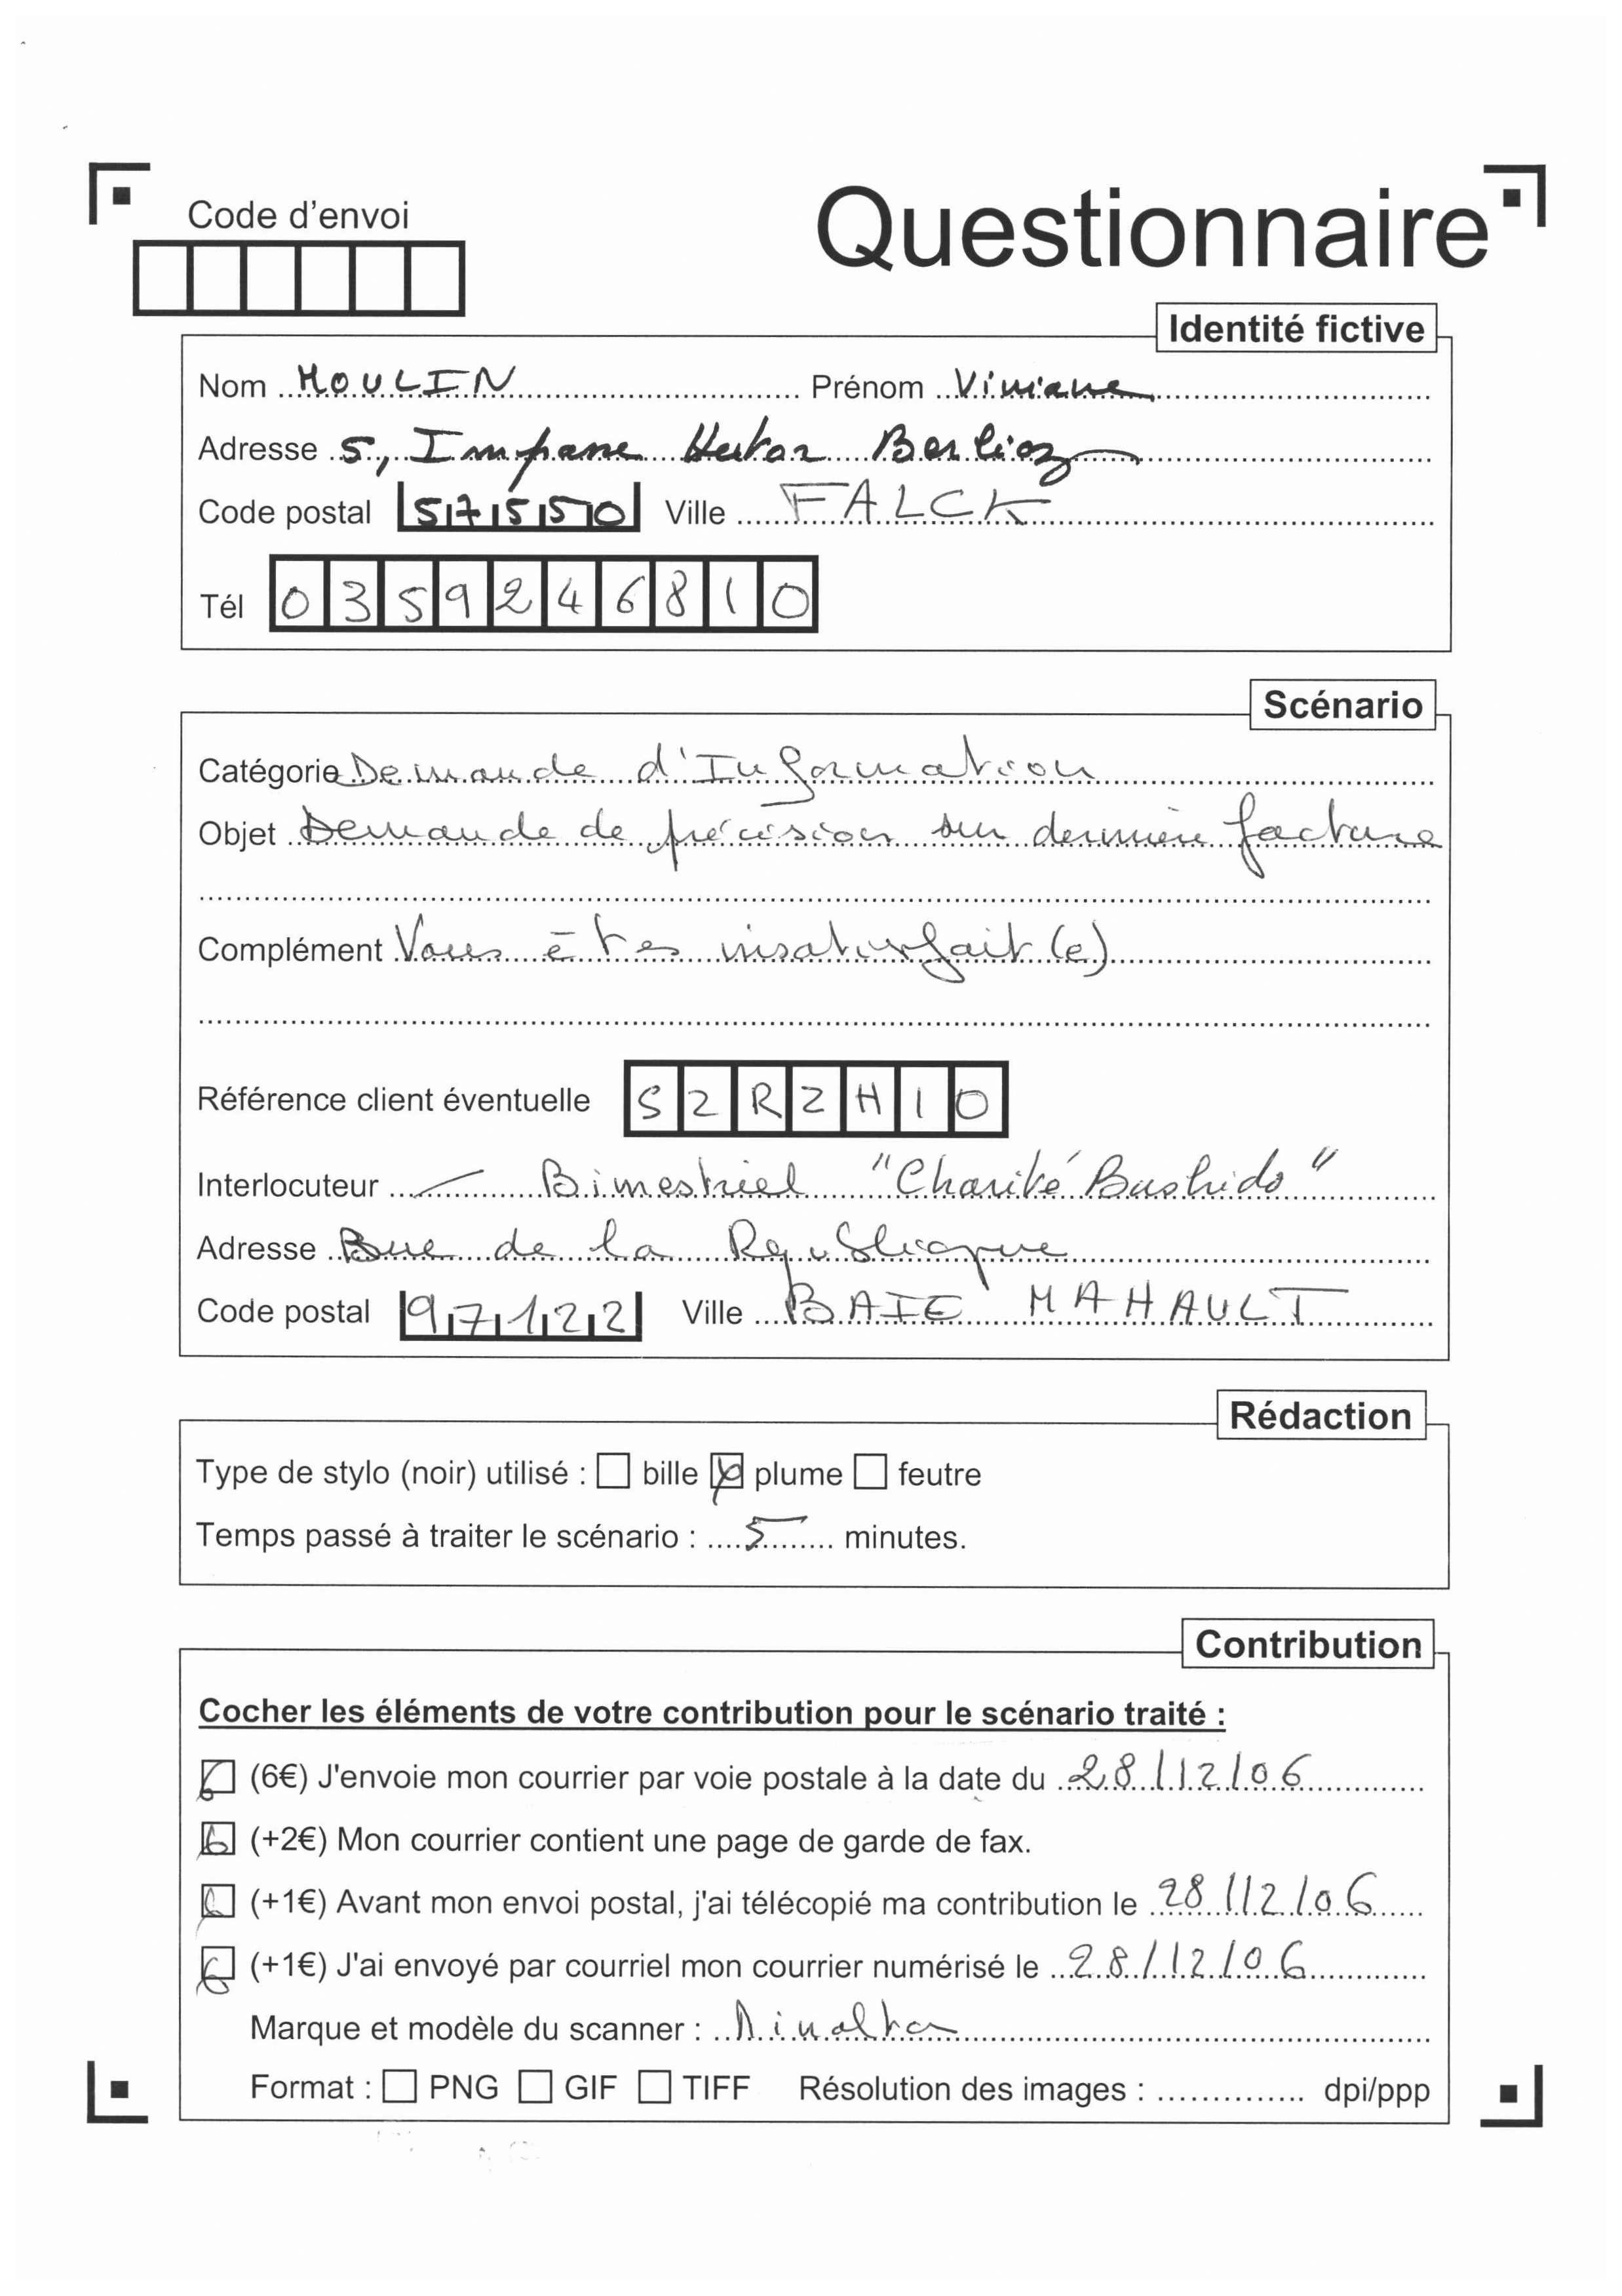 Code d'envoi
Questionnaire
Identité fictive
Nom MOULIN Prénom Viviane
Adresse 5, Impasse Hector Berlioz
Code postal 57550 Ville FALCK
Tél 0359246810
Scénario
Catégorie Demande d'Information
Objet Demande de précision sur dernière facture
Complément Vous êtes insatisfait(e)
Référence client éventuelle S2RZH10
Interlocuteur Bimestriel "Charité Bushido"
Adresse Rue de la République
Code postal 97122 Ville BAIE MAHAULT
Rédaction
Type de stylo (noir) utilisé : bille plume feutre
Temps passé à traiter le scénario : 5 minutes.
Contribution
Cocher les éléments de votre contribution pour le scénario traité :
(6€) J'envoie mon courrier par voie postale à la date du 28/12/06
(+2€) Mon courrier contient une page de garde de fax.
(+1€) Avant mon envoi postal, j'ai télécopié ma contribution le 28/12/06
(+1€) J'ai envoyé par courriel mon courrier numérisé le 28/12/06
Marque et modèle du scanner :
Format : PNG GIF TIFF Résolution des images : .............. dpi/ppp